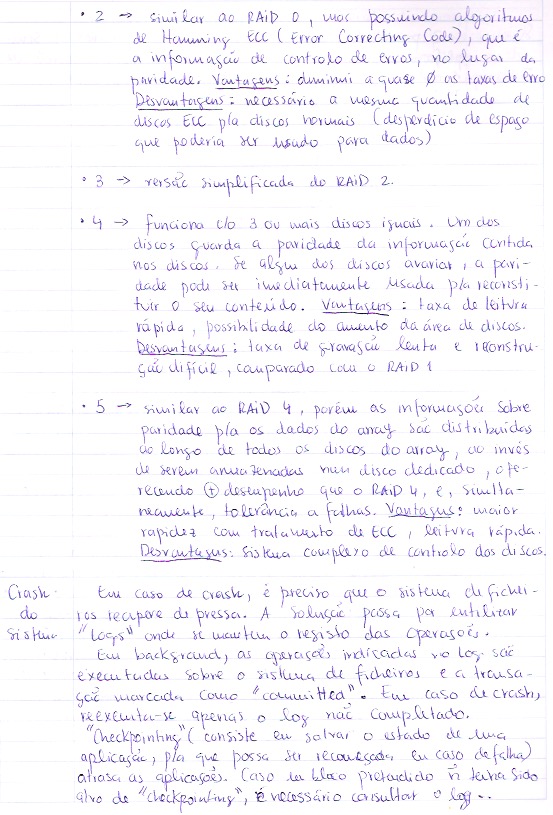 • 2 → similar ao RAiD 0, mas possuindo algoritmos
de Hamming ECC (Error Correcting Code), que é
a informação de controlo de erros, no lugar da
paridade. Vantagens: diminui a quase Ø as taxas de erro
Desvantagens: necessário a mesma quantidade de
discos ECC p/a discos normais (desperdício de espaço
que poderia ser usado para dados)
• 3 → versão simplificada do RAiD 2.
• 4 → funciona c/o 3 ou mais discos iguais. Um dos
discos guarda a paridade da informação contida
nos discos. Se algum dos discos avariar, a pari-
dade pode ser imediatamente usada p/a reconsti-
tuir o seu conteúdo. Vantagens: taxa de leitura
rápida, possibilidade do aumento da área de discos.
Desvantagens: taxa de gravação lenta e reconstru-
ção difícil, comparado com o RAiD 1
• 5 → similar ao RAiD 4, porém as informações sobre
paridade p/a os dados do array são distribuídas
ao longo de todos os discos do array, ao invés
de serem armazenadas num disco dedicado, ofe-
recendo ⊕ desempenho que o RAiD 4, e, simulta-
neamente, tolerância a falhas. Vantagens: maior
rapidez com tratamento de ECC, leitura rápida.
Desvantagens: Sistema complexo de controlo dos discos.
Crash
do
sistema
Em caso de crash, é preciso que o sistema de fichei-
ros recupere depressa. A solução passa por utilizar
"Logs" onde se mantem o registo das operações.
Em background, as operações indicadas no log são
executadas sobre o sistema de ficheiros e a transa-
ção marcada como "committed". Em caso de crash,
reexecuta-se apenas o log não completado.
"Checkpointing" (consiste em salvar o estado de uma
aplicação, p/a que possa ser recomeçada em caso de falha)
atrasa as aplicações. Caso um bloco pretendido ñ tenha sido
alvo de "checkpointing", é necessário consultar o log...